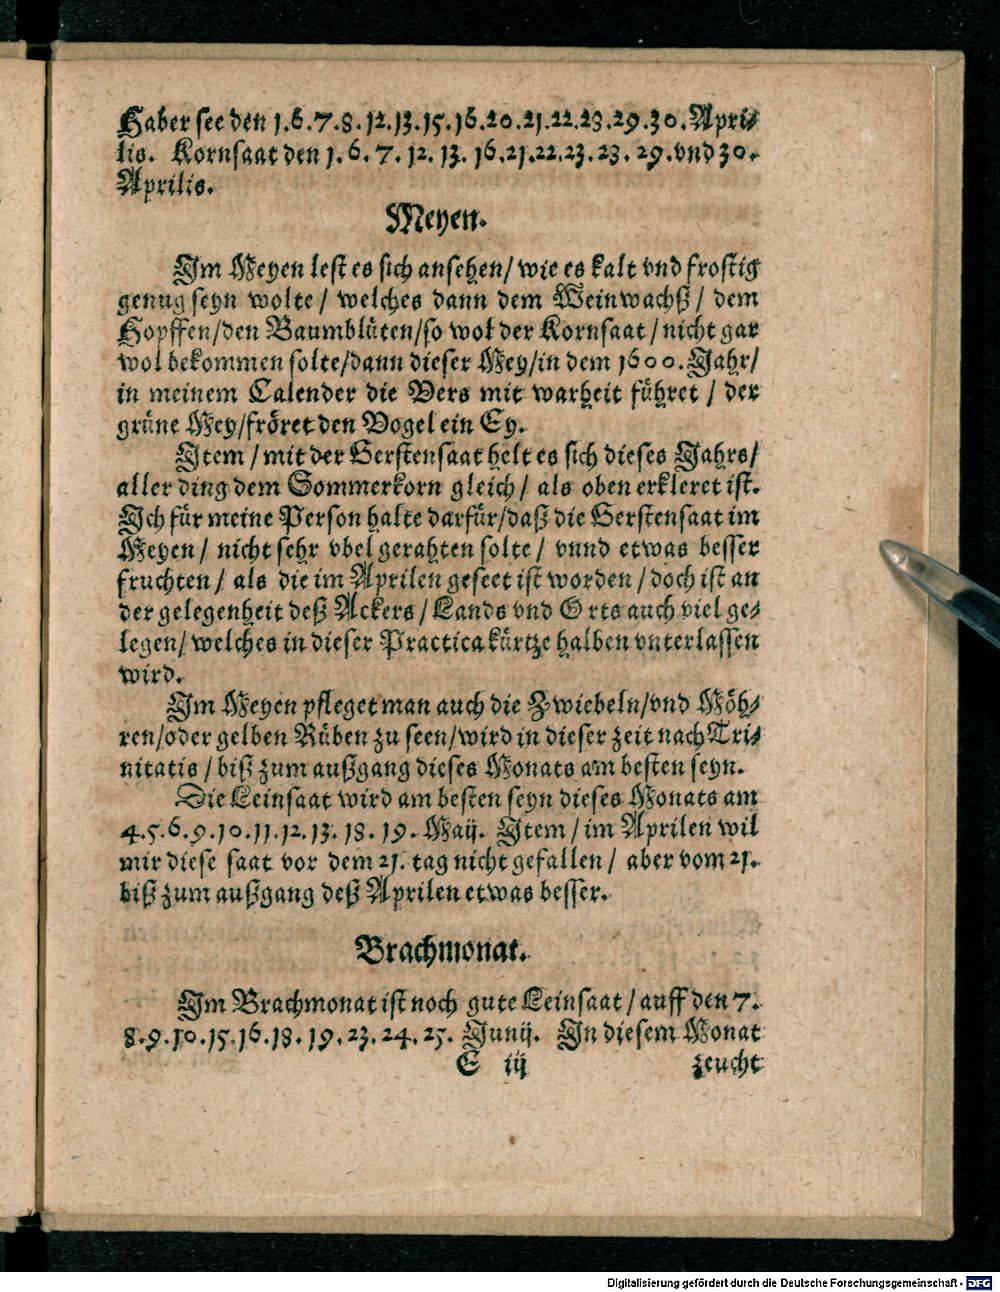 Haber see den 1.6.7.8.12.13.15.16.20.21.22.23.29.30. Apri⸗
lis. Kornsaat den 1.6.7.12.13.16.21.22.23.23.29. vnd 30.
Aprilis.
Meyen.
Im Meyen lest es sich ansehen/ wie es kalt vnd frostig
genug seyn wolte/ welches dann dem Weinwachß/ dem
Hopffen/den Baumblüten/so wol der Kornsaat/nicht gar
wol bekommen solte/dann dieser Mey/in dem 1600. Jahr/
in meinem Calender die Vers mit warheit führet/ der
grüne Mey/fröret den Vogel ein Ey.
Item/ mit der Gerstensaat helt es sich dieses Jahrs/
aller ding dem Sommerkorn gleich/ als oben erkleret ist.
Ich für meine Person halte darfür/daß die Gerstensaat im
Meyen/ nicht sehr vbel gerahten solte/ vnnd etwas besser
fruchten/ als die im Aprilen geseet ist worden/doch ist an
der gelegenheit deß Ackers/Lands vnd Orts auch viel ge⸗
legen/welches in dieser Practica kürtze halben vnterlassen
wird.
Im Meyen pfleget man auch die Zwiebeln/vnd Möh⸗
ren/oder gelben Rüben zu seen/wird in dieser zeit nach Tri⸗
nitatis/biß zum außgang dieses Monats am besten seyn.
Die Leinsaat wird am besten seyn dieses Monats am
4.5.6.9.10.11.12.13.18.19. Maij. Item/im Aprilen wil
mir diese saat vor dem 21. tag nicht gefallen/ aber vom 21.
biß zum außgang deß Aprilen etwas besser.
Brachmonat.
Im Brachmonat ist noch gute Leinsaat/auff den 7.
8.9.10.15.16.18.19.23.24.25. Junij. In diesem Monat
E iij zeucht
Digitalisierung gefördert durch die Deutsche Forschungsgemeinschaft - DFG